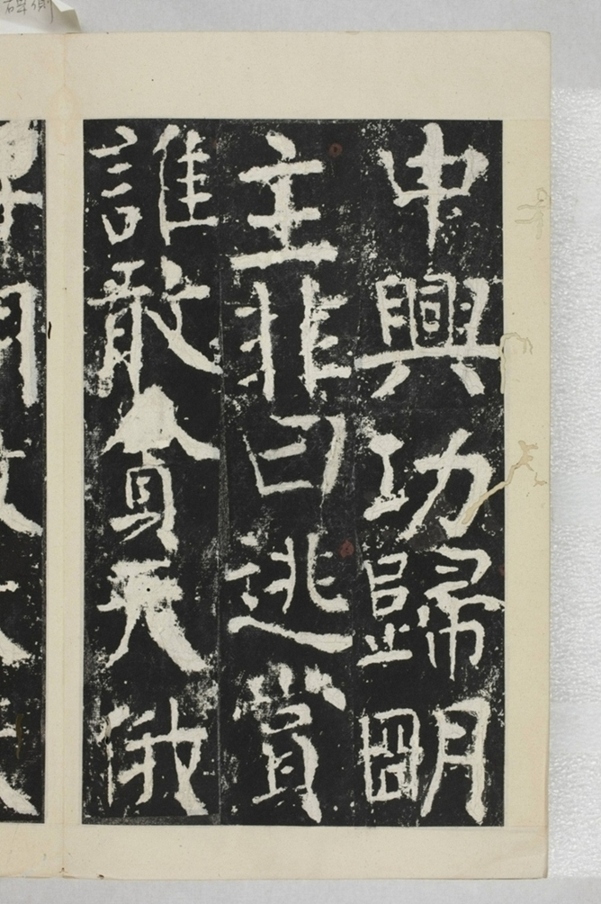 中興功歸明
主非曰逃賞
誰敢貪天俄